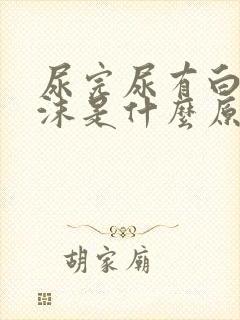 尿完尿有白
沫是什麼原
胡家廟